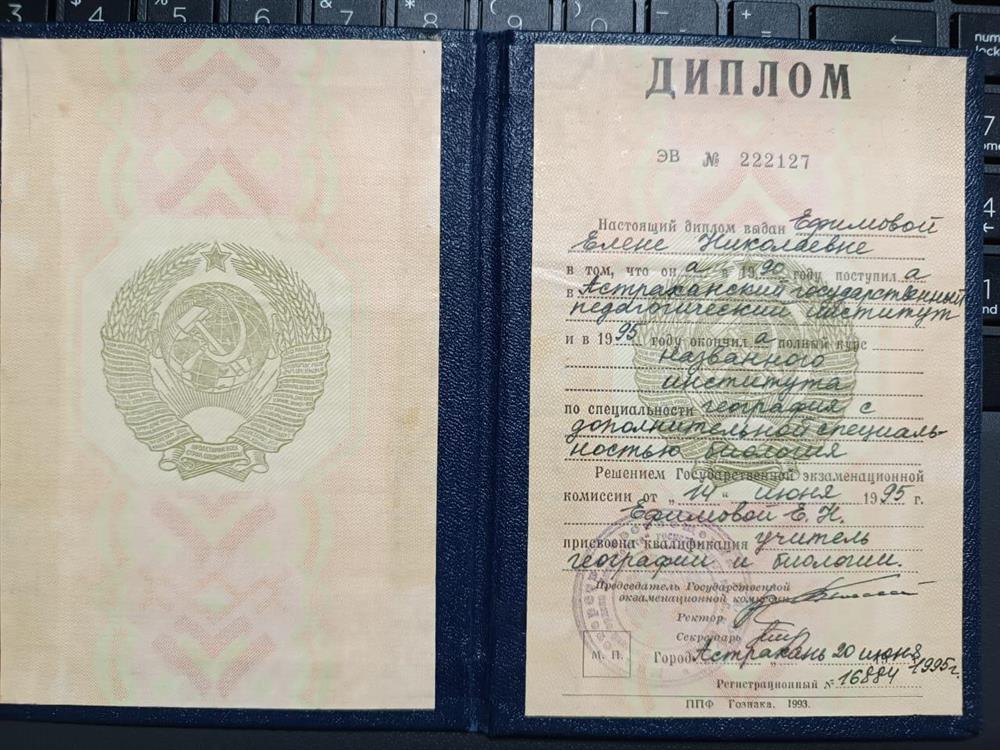 ДИПЛОМ
ЭВ № 222127
Настоящий диплом выдан Ефимовой
Елене Николаевне
в том, что он а в 1990 году поступил а
в Астраханский государственный
педагогический институт
и в 1995 году окончил а полный курс
названного
института
по специальности география с
дополнительной специаль-
ностью биология
Решением Государственной экзаменационной
комиссии от „14" июня 1995 г.
Ефимовой Е. Н.
присвоена квалификация учитель
географии и биологии.
Председатель Государственной
экзаменационной комиссии
Ректор
Секретарь
М. П.
Город Астрахань 20 июня 1995г.
Регистрационный № 16884
ППФ Гознака. 1993.